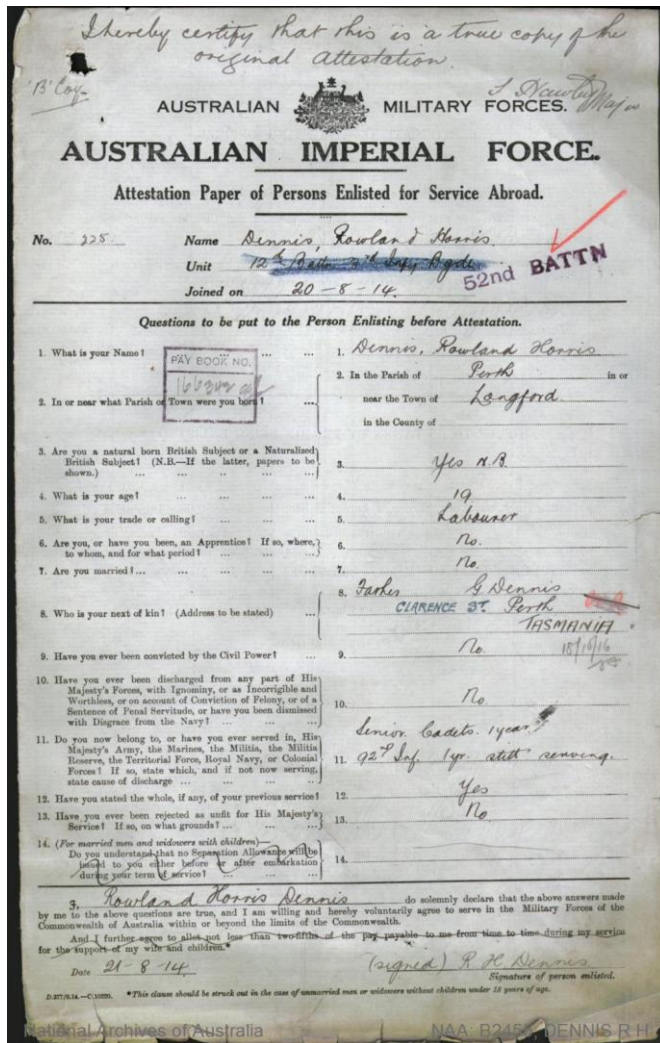 I hereby certify that this is a true copy of the
original attestation.
'B' Coy.
AUSTRALIAN MILITARY FORCES.
Major
AUSTRALIAN IMPERIAL FORCE.
Attestation Paper of Persons Enlisted for Service Abroad.
No. 225. Name Dennis, Rowland Harris.
Unit 12th Battn 3rd Infy Bgde 52nd BATTN
Joined on 20-8-14.
Questions to be put to the Person Enlisting before Attestation.
1. What is your Name? ... ... ... 1. Dennis, Rowland Harris
PAY BOOK NO.
2. In or near what Parish or Town were you born? ... 2. In the Parish of Perth in or
near the Town of Longford.
in the County of
3. Are you a natural born British Subject or a Naturalized
British Subject? (N.B.—If the latter, papers to be
shown.) ... ... ... ... 3. Yes N.B.
4. What is your age? ... ... ... ... 4. 19
5. What is your trade or calling? ... ... ... 5. Labourer
6. Are you, or have you been, an Apprentice? If so, where,
to whom, and for what period? ... ... ... 6. No.
7. Are you married? ... ... ... ... ... 7. No.
8. Who is your next of kin? (Address to be stated) ... 8. Father G Dennis
CLARENCE ST. Perth
TASMANIA
18/10/16
9. Have you ever been convicted by the Civil Power? ... 9. No
10. Have you ever been discharged from any part of His
Majesty's Forces, with Ignominy, or as Incorrigible and
Worthless, or on account of Conviction of Felony, or of a
Sentence of Penal Servitude, or have you been dismissed
with Disgrace from the Navy? ... ... ... 10. No
11. Do you now belong to, or have you ever served in, His
Majesty's Army, the Marines, the Militia, the Militia
Reserve, the Territorial Force, Royal Navy, or Colonial
Forces? If so, state which, and if not now serving,
state cause of discharge ... ... ... 11. Senior Cadets. 1 year.
92nd Inf. 1 yr. still serving.
12. Have you stated the whole, if any, of your previous service? 12. Yes
13. Have you ever been rejected as unfit for His Majesty's
Service? If so, on what grounds? ... ... ... 13. No
14. (For married men and widowers with children)—
Do you understand that no Separation Allowance will be
issued to you either before or after embarkation
during your term of service? ... ... ... 14.
I, Rowland Harris Dennis do solemnly declare that the above answers made
by me to the above questions are true, and I am willing and hereby voluntarily agree to serve in the Military Forces of the
Commonwealth of Australia within or beyond the limits of the Commonwealth.
And I further agree to allot not less than two-fifths of the pay payable to me from time to time during my service
for the support of my wife and children.*
Date 21-8-14. (signed) R H Dennis
Signature of person enlisted.
D.377/8.14.—C.10220. *This clause should be struck out in the case of unmarried men or widowers without children under 18 years of age.
National Archives of Australia NAA: B2455, DENNIS R H